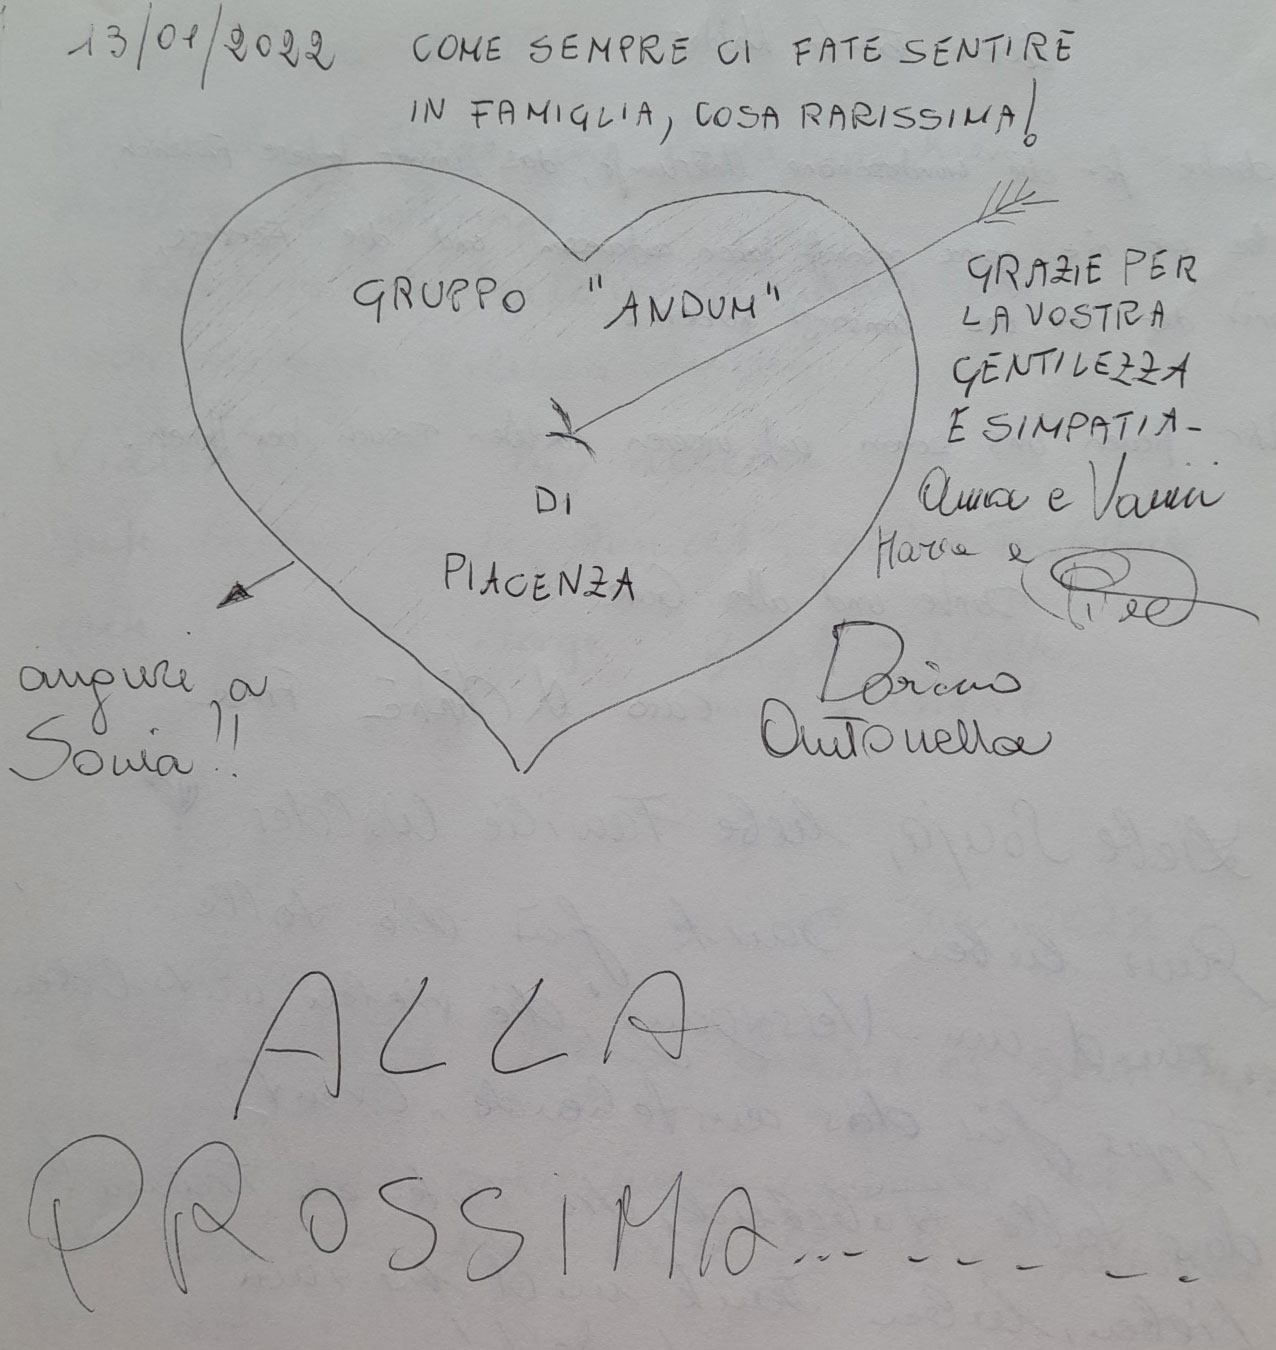 13/01/2022
COME SEMPRE CI FATE SENTIRE
IN FAMIGLIA, COSA RARISSIMA!
GRUPPO "ANDUM"
DI
PIACENZA
GRAZIE PER
LA VOSTRA
GENTILEZZA
E SIMPATIA-
Anna e Vanni
Maria e
Doriano
Antonella
auguri a
Sonia!!
ALLA
PROSSIMA...